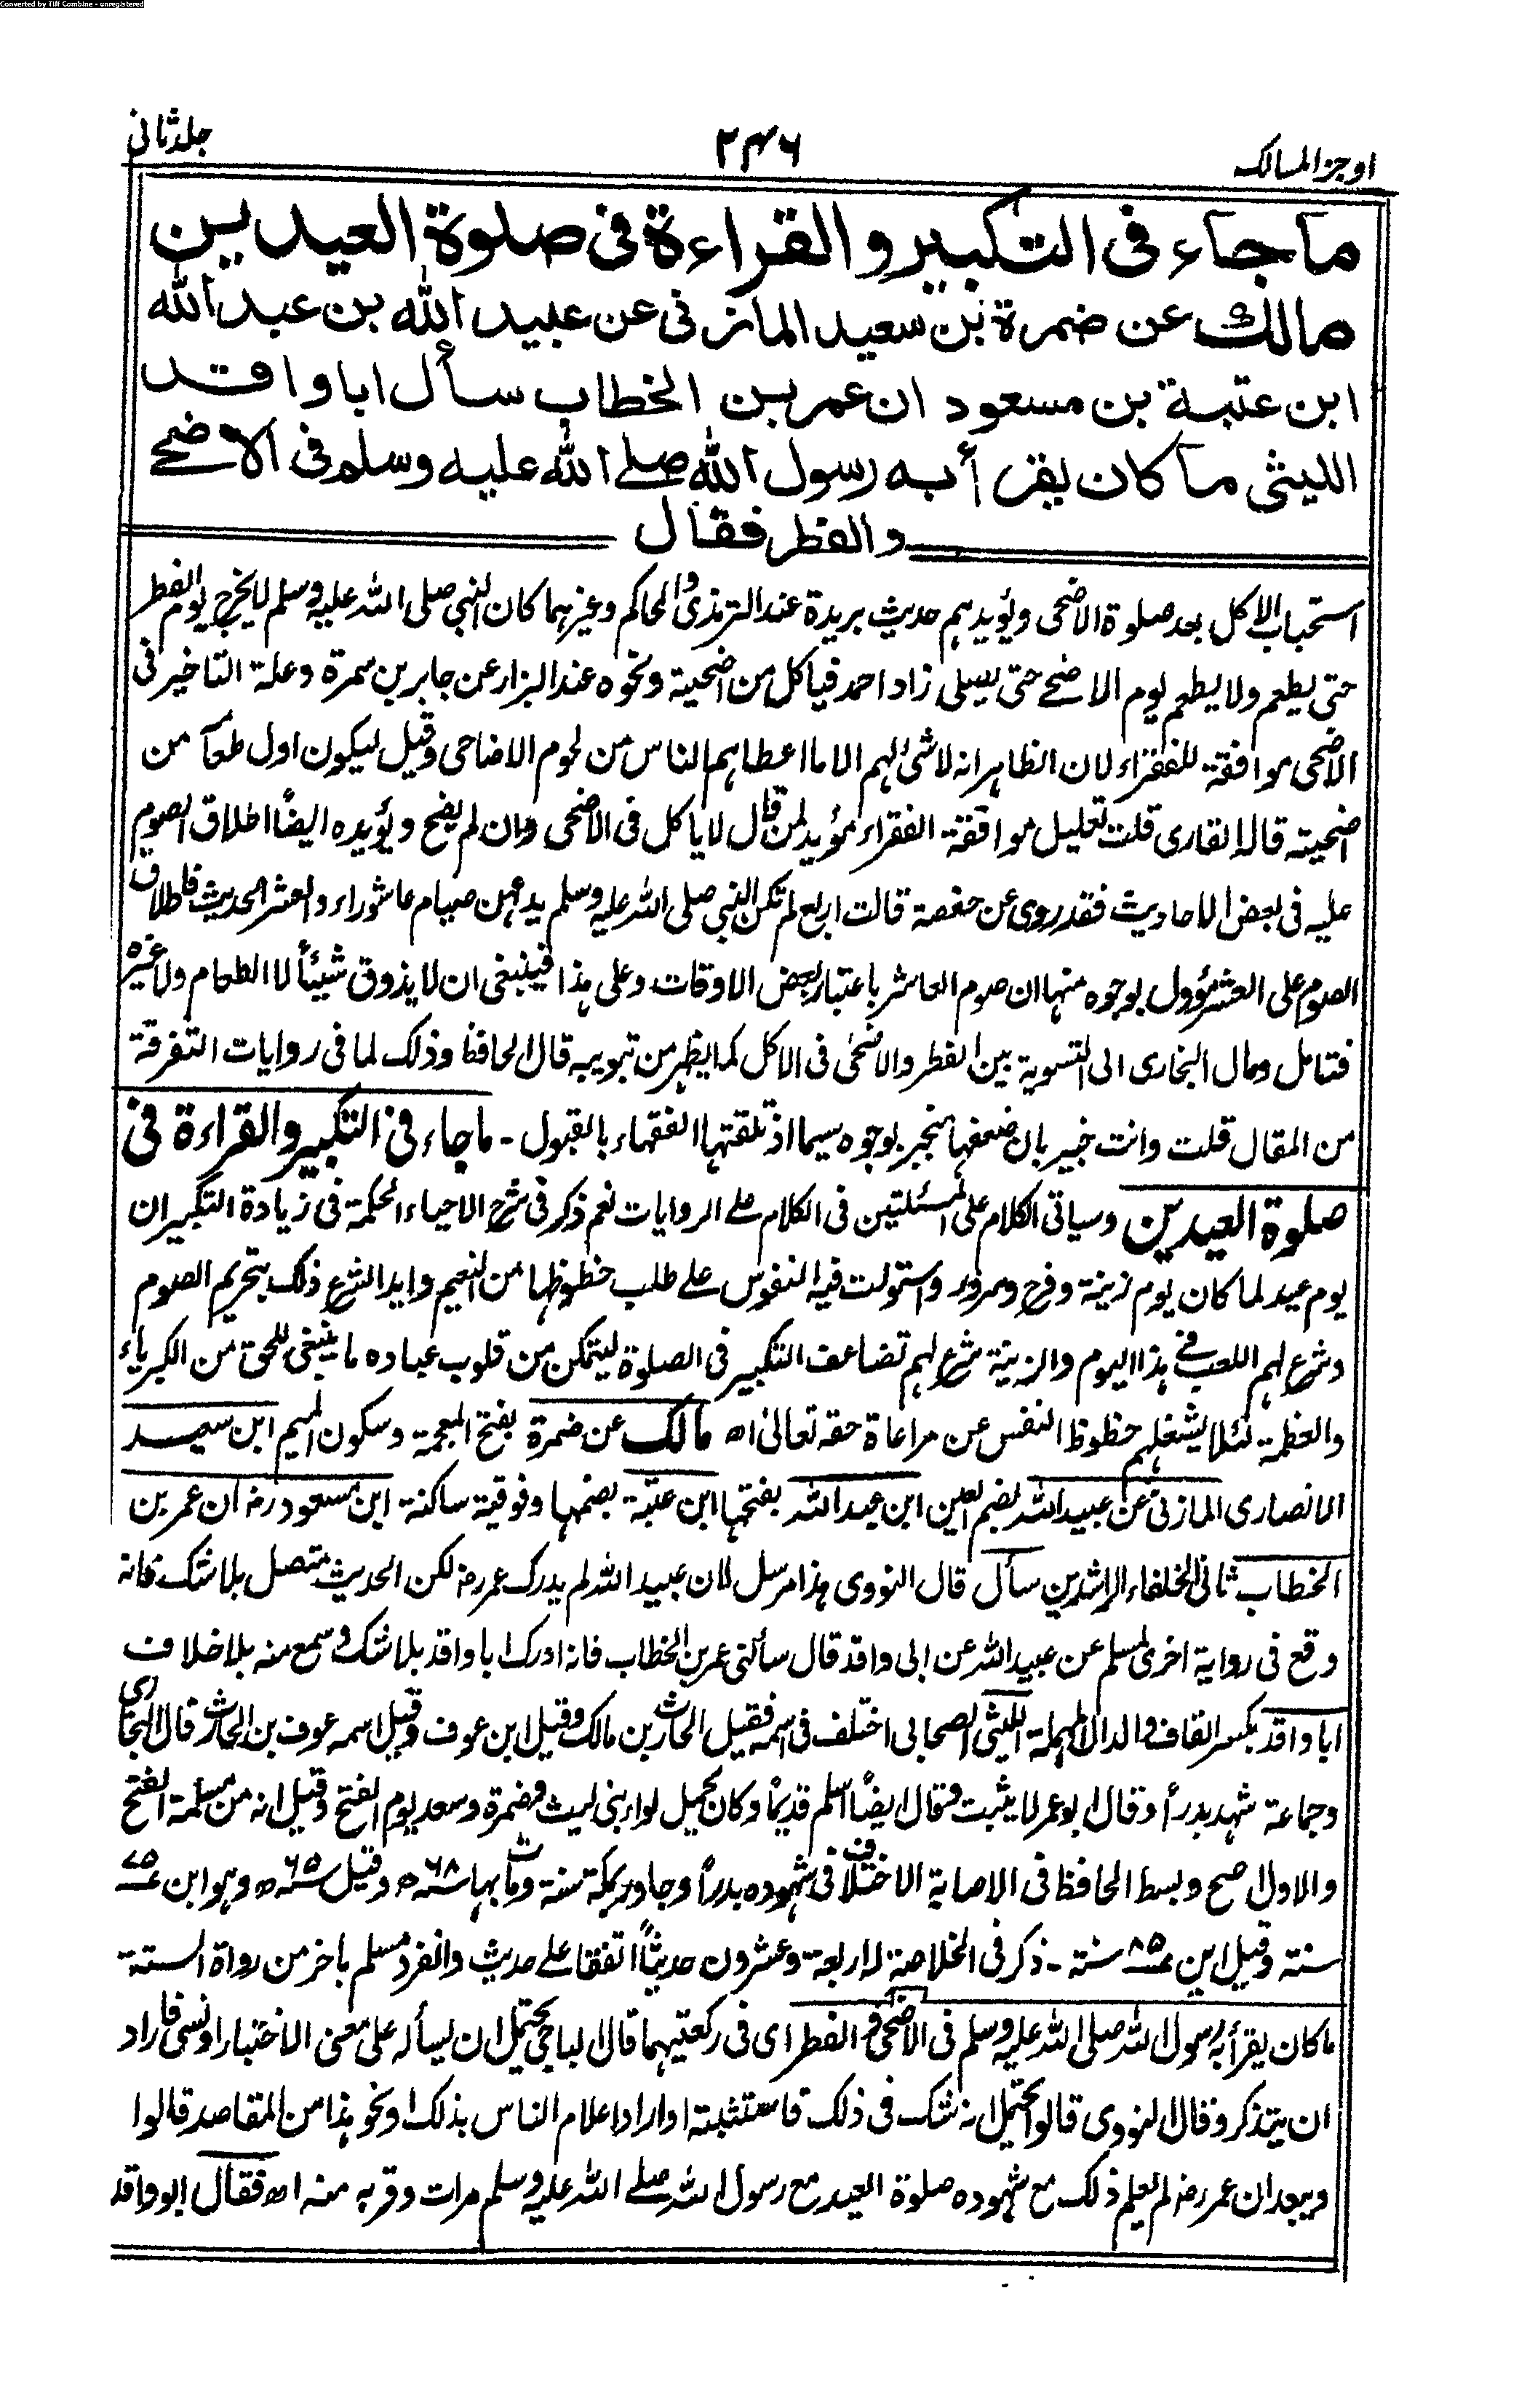 Converted by Tiff Combine - unregistered
اوجز المسالك
٢٤٦
جلد ثانى
ما جاء فى التكبير والقراءة فى صلوة العيدين
مالك عن ضمرة بن سعيد المازنى عن عبيد الله بن عبد الله
ابن عتبة بن مسعود ان عمر بن الخطاب سأل ابا واقد
الليثى ما كان يقرأ به رسول الله صلے الله عليه وسلم فى الاضحے
والفطر فقال
استحباب الاكل بعد صلوة الاضحى ويؤيدهم حديث بريدة عند الترمذى والحاكم وغيرهما كان النبي صلى الله عليه وسلم لا يخرج يوم الفطر
حتى يطعم ولا يطعم يوم الاضحے حتى يصلى زاد احمد فياكل من اضحية ونحوه عند البزار عن جابر بن سمرة وعلة التاخير فى
الاضحى موافقة للفقراء لان الظاهر انه لا شئ لهم الا ما اعطاهم الناس من لحوم الاضاحى وقيل ليكون اول طعآ من
اضحيته قال القارى قلت تعليل موافقة الفقراء مؤيد لمن قال لا ياكل فى الاضحى وان لم يضح ويؤيده ايضًا اطلاق الصوم
عليه فى بعض الاحاديث فقد روى عن حفصة قالت اربع لم تكن النبي صلى الله عليه وسلم يدعهن صيام عاشوراء والعشر الحديث فاطلاق
الصوم على العشر مؤول بوجوه منها ان صوم العاشر باعتبار بعض الاوقات وعلى هذا فينبغى ان لا يذوق شيئًا لا الطعام ولا غيره
فتامل ومال البخارى الى التسوية بين الفطر والاضحى فى الاكل كما يظهر من تبويبه قال الحافظ وذلك لما فى روايات التفرقة
من المقال قلت وانت خبير بان ضعفها منجبر بوجوه سيما اذ تلقتها الفقهاء بالقبول - ما جاء فى التكبير والقراءة فى
صلوة العيدين وسياتى الكلام على المسئلتين فى الكلام علے الروايات نعم ذكر فى شرح الاحياء الحكمة فى زيادة التكبير ان
يوم عيد لما كان يوم زينة وفرح وسرور واستولت فيه النفوس علے طلب حظوظها من النعيم وايد الشرع ذلك بتحريم الصوم
وشرع لهم اللعب فى هذا اليوم والزينة شرع لهم تضاعف التكبير فى الصلوة ليتمكن من قلوب عباده ما ينبغى للحق من الكبرياء
والعظمة لئلا يشغلهم حظوظ النفس عن مراعاة حقه تعالىٰ اھ مالك عن ضمرة بفتح المعجمة وسكون الميم ابن سعيد
الانصارى المازنى عن عبيد الله بضم العين ابن عبد الله بفتحها ابن عتبة بضمها وفوقية ساكنة ابن مسعود رض ان عمر بن
الخطاب ثانى الخلفاء الراشدين سأل قال النووى هذا مرسل لان عبيد الله لم يدرك عمر رض لكن الحديث متصل بلا شك فانه
وقع فى رواية اخرى لمسلم عن عبيد الله عن ابى واقد قال سألنى عمر بن الخطاب فانه ادرك ابا واقد بلا شك وسمع منه بلا خلاف
ابا واقد بكسر القاف والدال المهملة الليثى الصحابى اختلف فى اسمه فقيل الحارث بن مالك وقيل ابن عوف وقيل اسمه عوف بن الحارث قال البخارى
وجماعة شهد بدرًا وقال ابو عمر لا يثبت وقال ايضًا اسلم قديمًا وكان يحمل لواء بنى ليث وضمرة وسعد يوم الفتح وقيل انه من مسلمة الفتح
والاول اصح وبسط الحافظ فى الاصابة الاختلاف فى شهوده بدرًا وجاور بمكة سنة ومات بها سنة ٦٨ھ وقيل سنة ٦٥ھ وهو ابن ٧٥
سنة وقيل ابن ٨٥ سنة - ذكر فى الخلاصة له اربعة وعشرون حديثًا اتفقا علے حديث وانفرد مسلم باخر من رواة الستة
ما كان يقرأ به رسول الله صلى الله عليه وسلم فى الاضحى والفطر اى فى ركعتيهما قال الباجى يحتمل ان يسأله على معنى الاختبار او نسى فاراد
ان يتذكر وقال النووى قالوا يحتمل انه شك فى ذلك فاستثبته او اراد اعلام الناس بذلك او نحو هذا من المقاصد قالوا
ويبعد ان عمر رض لم يعلم ذلك مع شهوده صلوة العيد مع رسول الله صلے الله عليه وسلم مرات وقربه منه اھ فقال ابو واقد